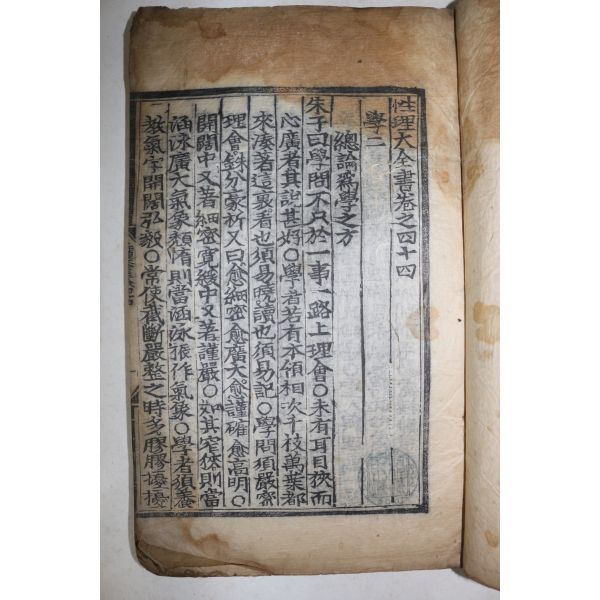 性理大全書卷之四十四
學二
總論爲學之方
朱子曰學問不只於一事一路上理會○未有耳目狹而
心廣者其說甚好○學者若有本領相次千枝萬葉都
來湊著這裏看也須易曉讀也須易記○學問須嚴密
理會銖分毫析又曰愈細密愈廣大愈謹確愈高明○
開闊中又著細密寬緩中又著謹嚴○如其窄狹則當
涵泳廣大氣象頹惰則當涵泳振作氣象○學者須養
教氣宇開闊弘毅○常使截斷嚴整之時多膠膠擾擾